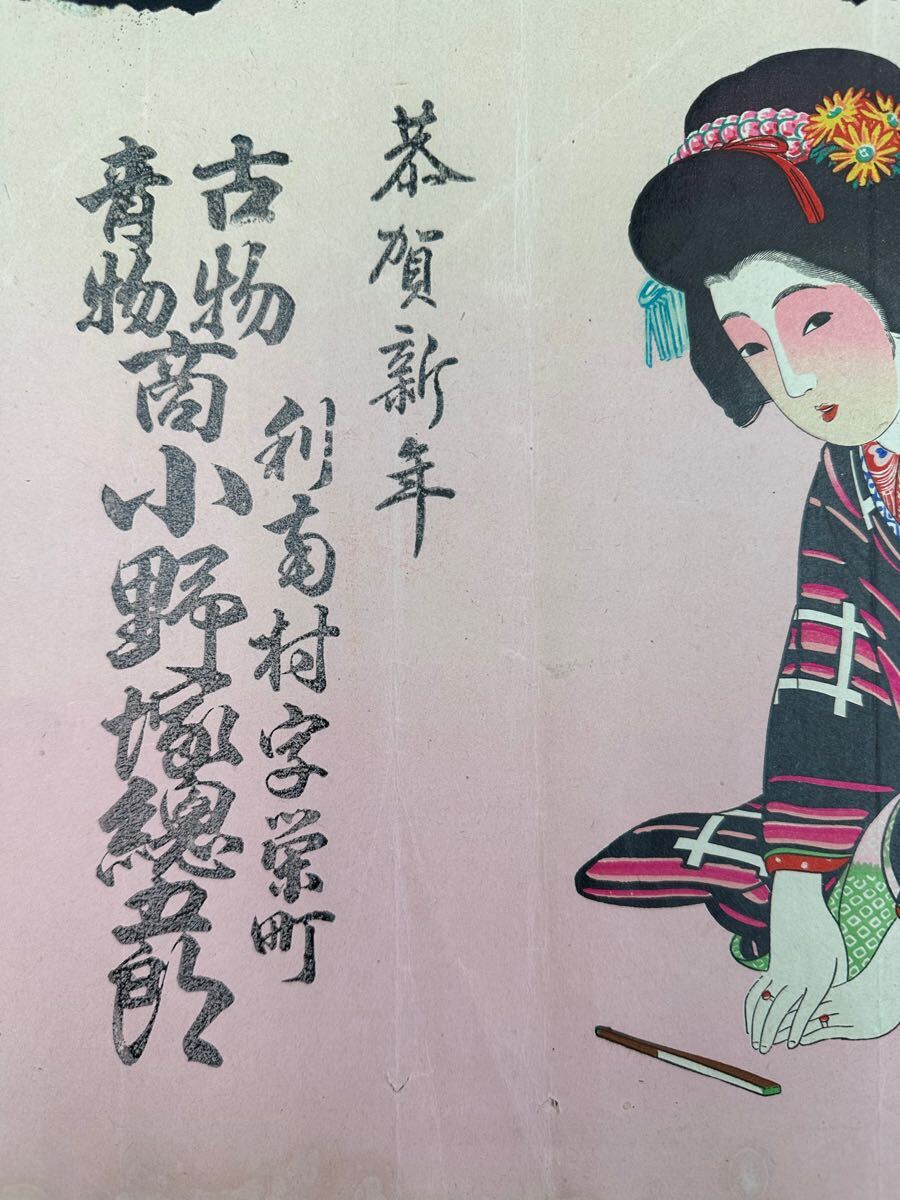 恭賀新年
利南村字栄町
古物
青物
商小野塚總五郎